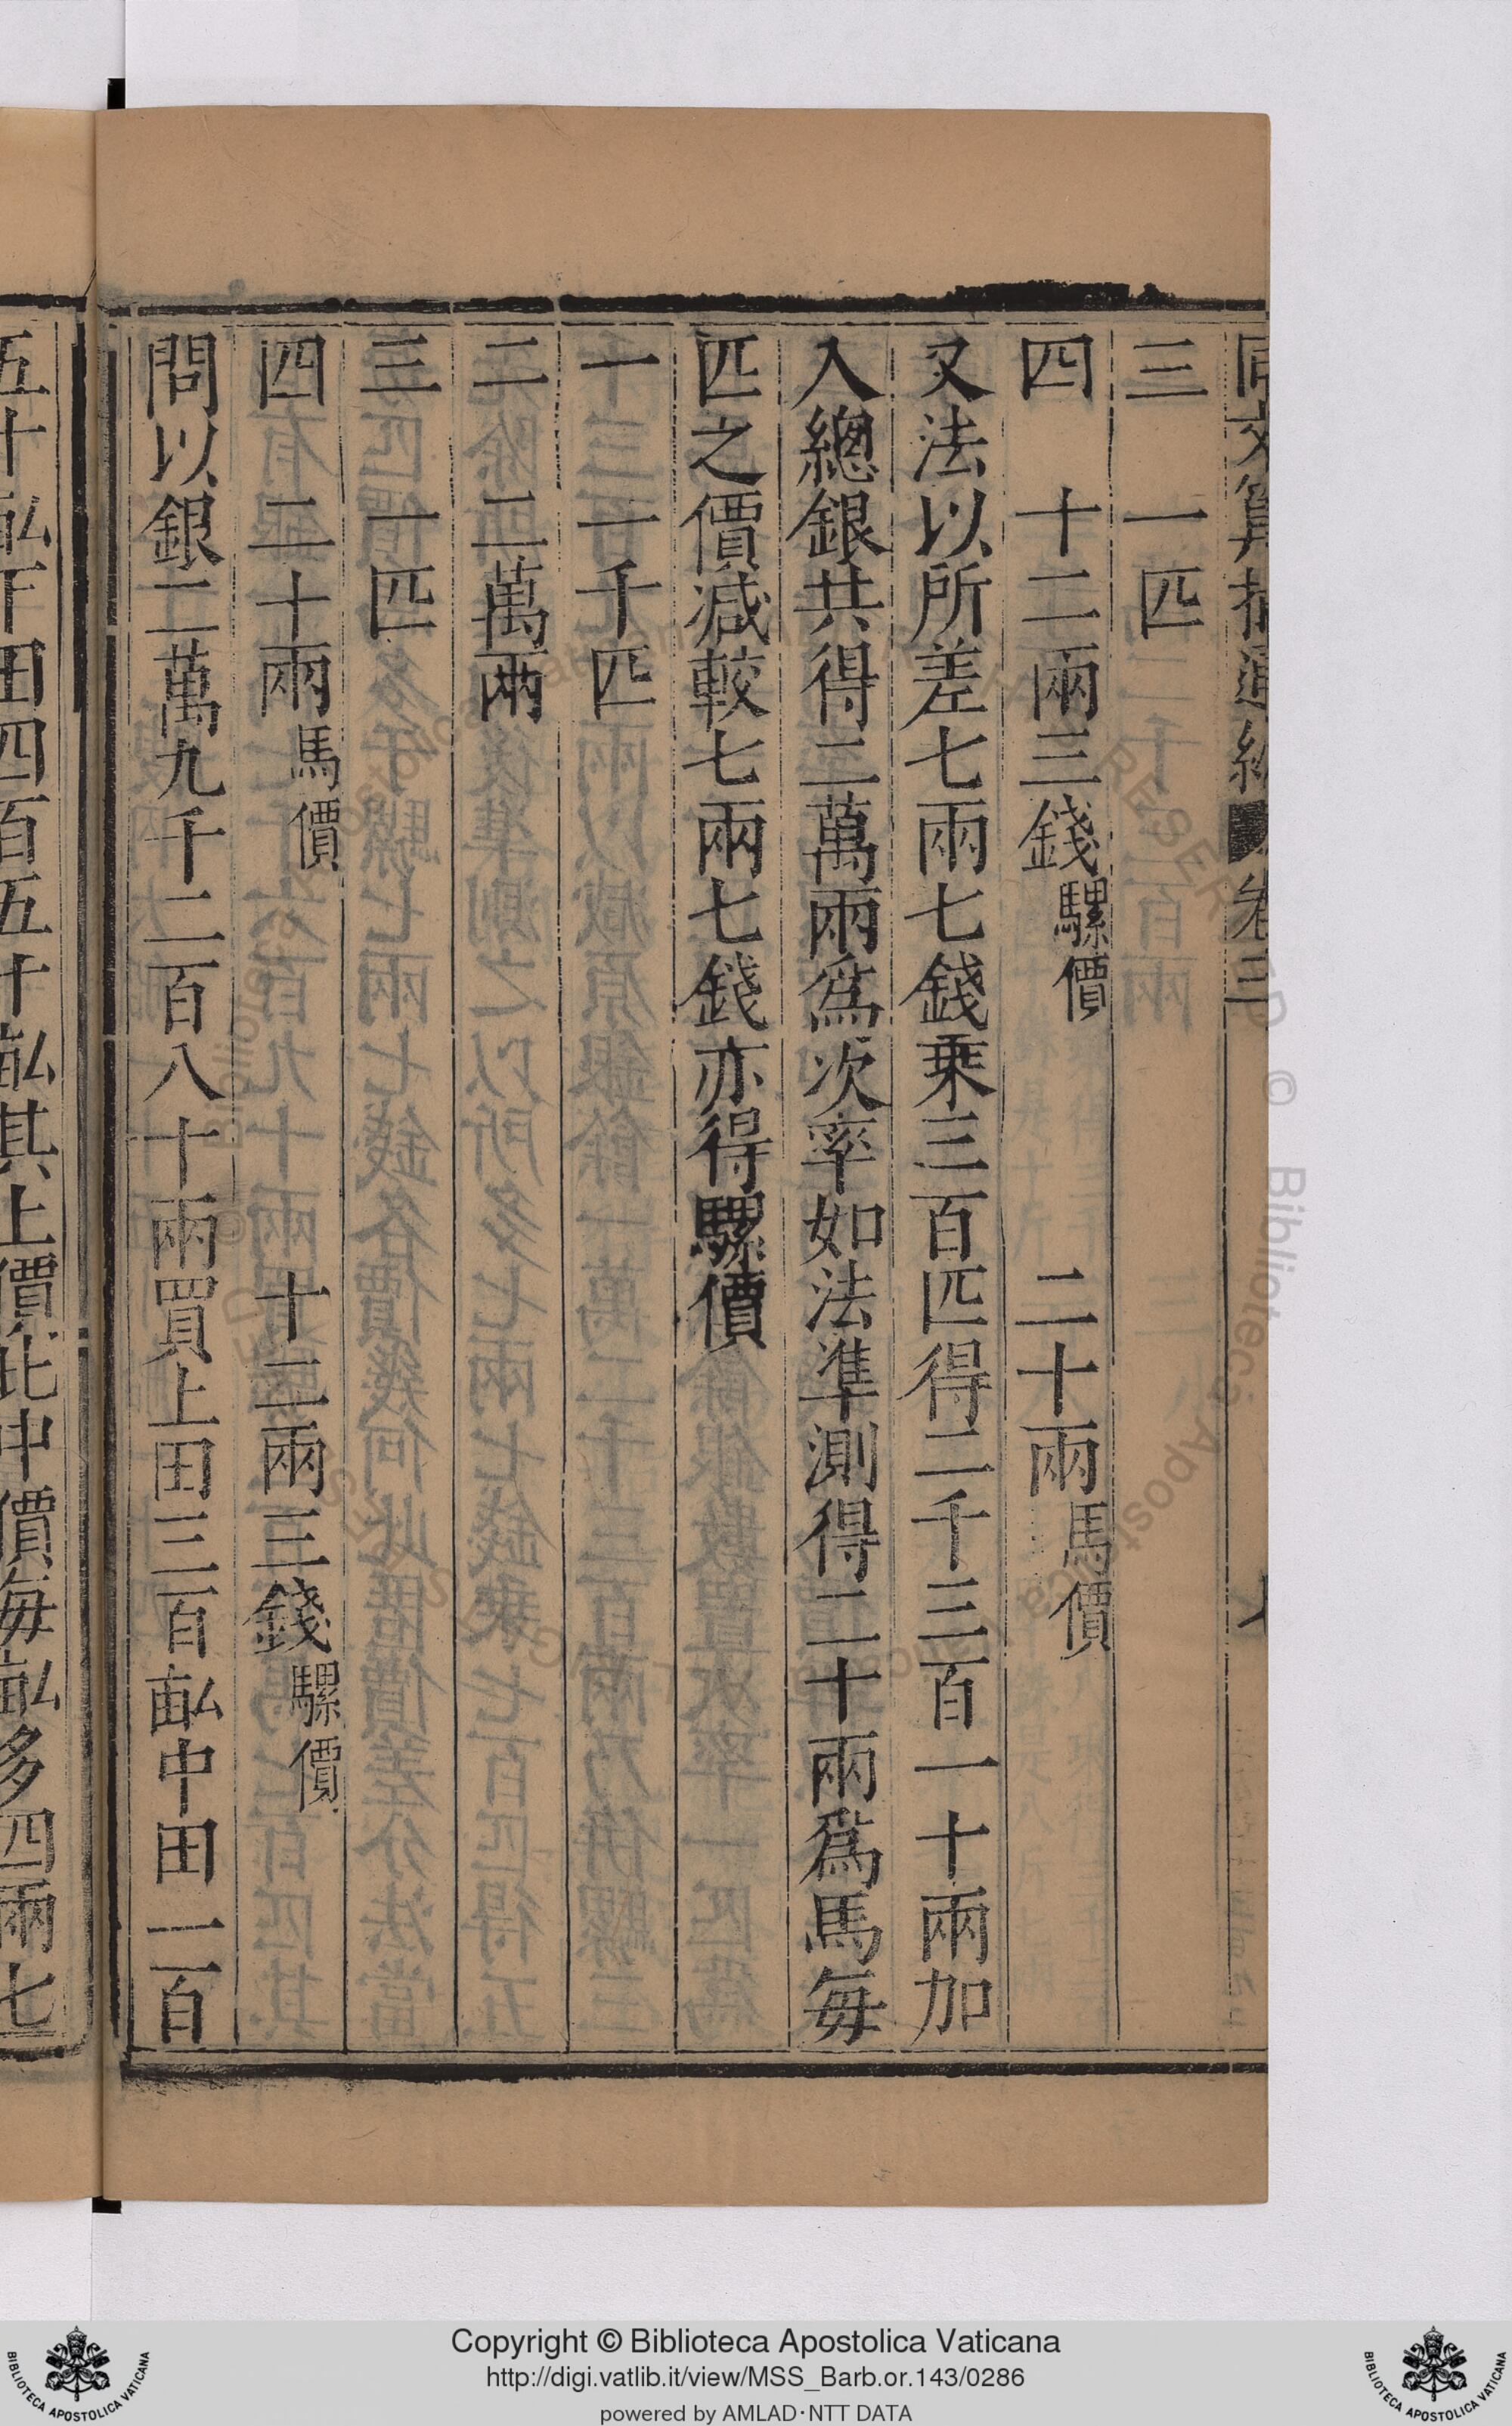 同文算指通編 卷三
三 一匹
四 十二兩三錢騾價 二十兩馬價
又法以所差七兩七錢乘三百匹得二千三百一十兩加
入總銀共得二萬兩為次率如法準測得二十兩為馬每
匹之價減較七兩七錢亦得騾價
一 一千匹
二 二萬兩
三 一匹
四 二十兩馬價 十二兩三錢騾價
問以銀二萬九千二百八十兩買上田三百畆中田一百
五十畆下田四百五十畆其上價比中價每畆多四兩七
Copyright © Biblioteca Apostolica Vaticana
http://digi.vatlib.it/view/MSS_Barb.or.143/0286
powered by AMLAD·NTT DATA
BIBLIOTECA APOSTOLICA VATICANA
BIBLIOTECA APOSTOLICA VATICANA